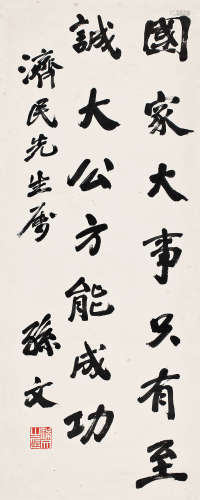 國家大事只有至
誠大公方能成功
濟民先生屬
孫文